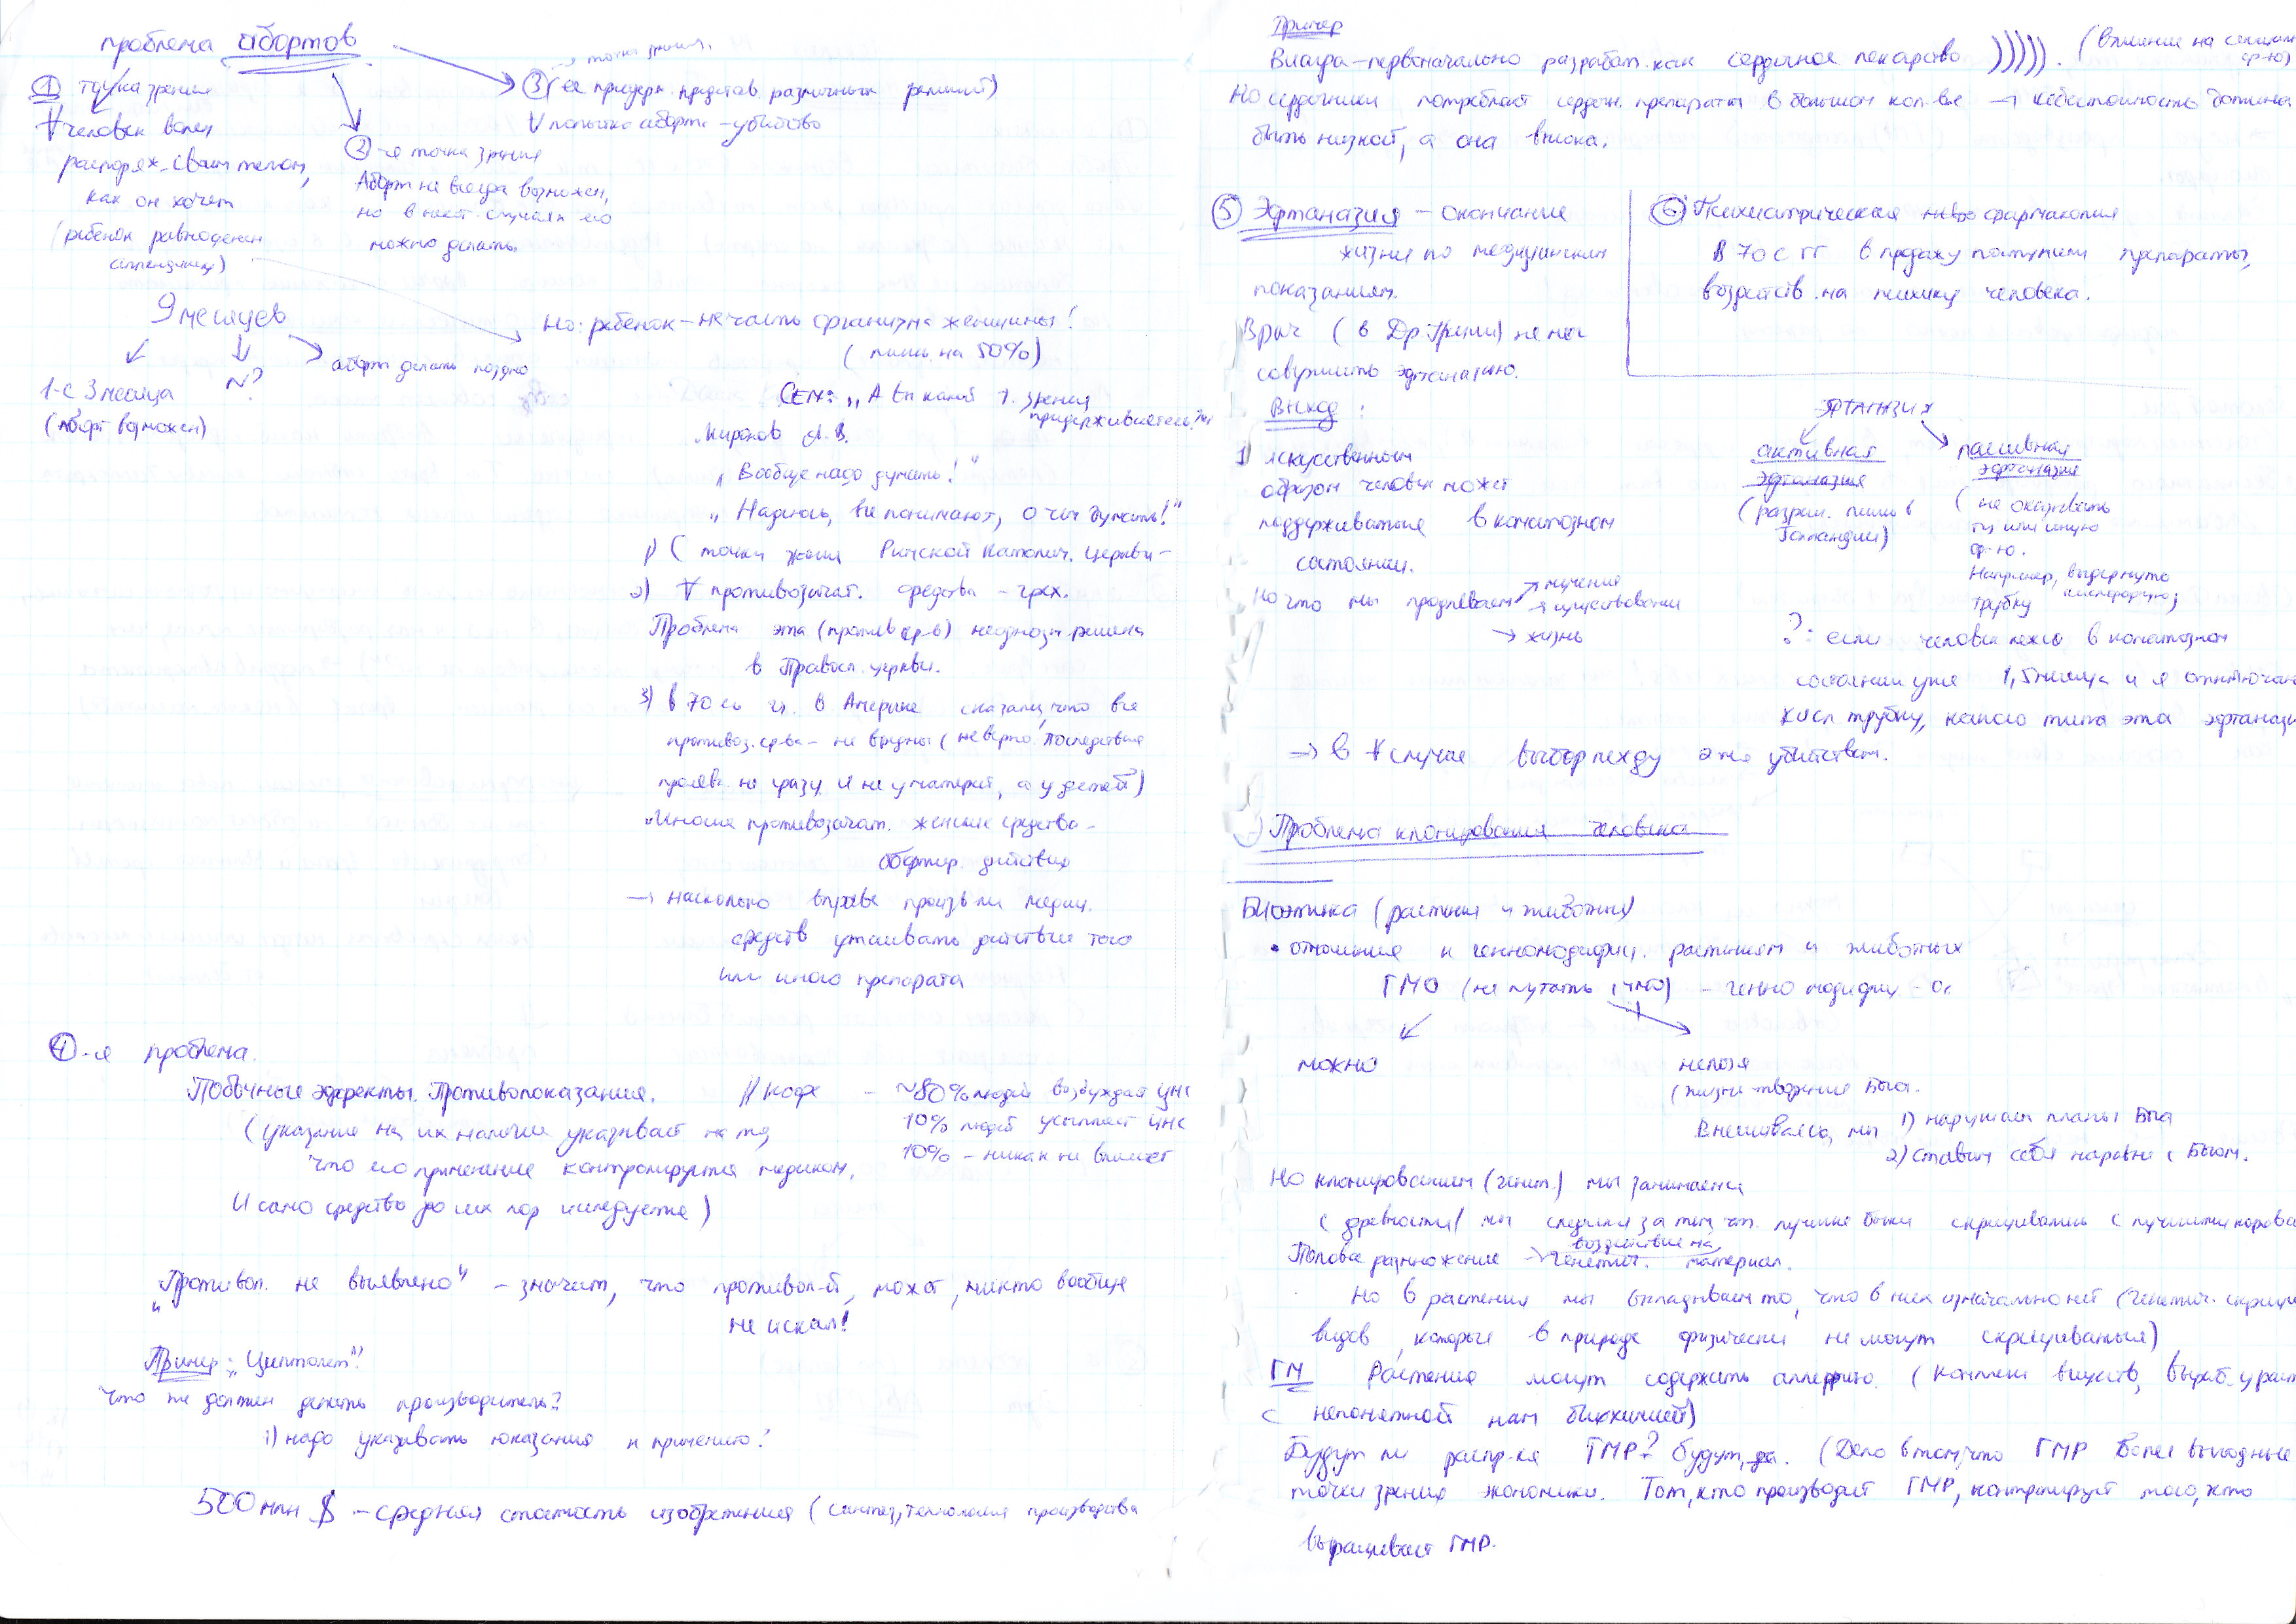 проблема абортов
① точка зрения
∀ человек волен
распоряж. своим телом,
как он хочет
(ребенок равноценен
аппендициту)
②-я точка зрения
Аборт не всегда возможен,
но в некот. случаях его
можно делать.
→ точка зрения.
③ (её придерж. представ. различных религий)
∀ попытка аборта – убийство
9 месяцев
1-е 3 месяца
(аборт возможен)
N?
аборт делать поздно
Но: ребенок – не часть организма женщины!
(лишь на 50%)
Сем: „А вы какой т. зрения
придерживаетесь?"
Миронов А.В.
„Вообще надо думать!"
„Надеюсь, вы понимают, о чем думать!"
1) С точки зрения Римской Католич. Церкви –
2) ∀ противозачат. средства – грех.
Проблема эта (против ср-в) неоднозн. решена
в Правосл. церкви.
3) в 70-ых гг. в Америке сказали, что все
противоз. ср-ва – не вредны (неверно. Последствия
прояв. не сразу и не у матерей, а у детей)
Многие противозачат. женские средства –
абортир. действия
→ насколько вправе произв-ли медиц.
средств утаивать действие того
или иного препарата
④-я проблема.
Побочные эффекты. Противопоказания.
(указание на их наличие указывает на то,
что его применение контролируется медиком,
И само средство до сих пор исследуется)
// кофе – ~80% людей возбуждает ЦНС
10% людей усыпляет ЦНС
10% – никак не влияет
„Противоп. не выявлено" – значит, что противоп-й, может, никто вообще
не искал!
Пример: „Циптолет"!
Что же должен делать производитель?
1) надо указывать показания к примению!
500 млн $ – средняя стоимость изобретения (синтез, технология производства
Пример
Виагра – первоначально разработ. как сердечное лекарство ))))). (влияние на
ф-ю)
Но сердечники потребляют сердечн. препараты в большом кол-ве → себестоимость должна
быть низкой, а она высока.
⑤ Эфтаназия – окончание
жизни по медицинским
показаниям.
Врач (в Др. Греции) не мог
совершить эфтаназию.
Выход:
1) искусственным
образом человек может
поддерживаться в коматозном
состоянии.
Но что мы продлеваем → мучения
→ существование
→ жизнь
⑥ Психиатрическая нейрофармакопия
В 70-е гг. в продажу поступили препараты,
воздейств. на психику человека.
эфтаназия
активная
эфтаназия
(разреш. лишь в
Голландии)
пассивная
эфтаназия
(не оказывать
ту или иную
ф-ю.
Например, выдернуто
кислородную
трубку
?: если человек лежит в коматозном
состоянии уже 1,5 месяца и я отключаю
кисл. трубку, какого типа эта эфтаназия
→ в ∀ случае выбор между э же убийством.
Проблема клонирования человека
Биоэтика (растения и животных)
• отношения к генномодифиц. растениям и животных
ГМО (не путать с ЧМО) – генно модифиц. – о.
можно
нельзя
(жизнь – творение Бога.
Вмешиваясь, мы 1) нарушаем планы Бога
2) Ставим себя наравне с Богом.
Но клонированием (генет.) мы занимаемся
с древности / мы следили за тем, чт. лучшие быки скрещивались с лучшими корова
Половое размножение → воздействие на
генетич. материал.
Но в растения мы вкладываем то, что в них изначально нет (генетич. скрещ
видов, которые в природе физически не могут скрещиваться)
ГМ Растения могут содержать аллергию. (комплекс веществ, выраб. у раст
с непонятной нам биохимией)
Будут ли распр-ся ГМР? будут, да. (Дело в том, что ГМР более выгодные
точки зрения экономики. Тот, кто производит ГМР, контролирует того, кто
выращивает ГМР.